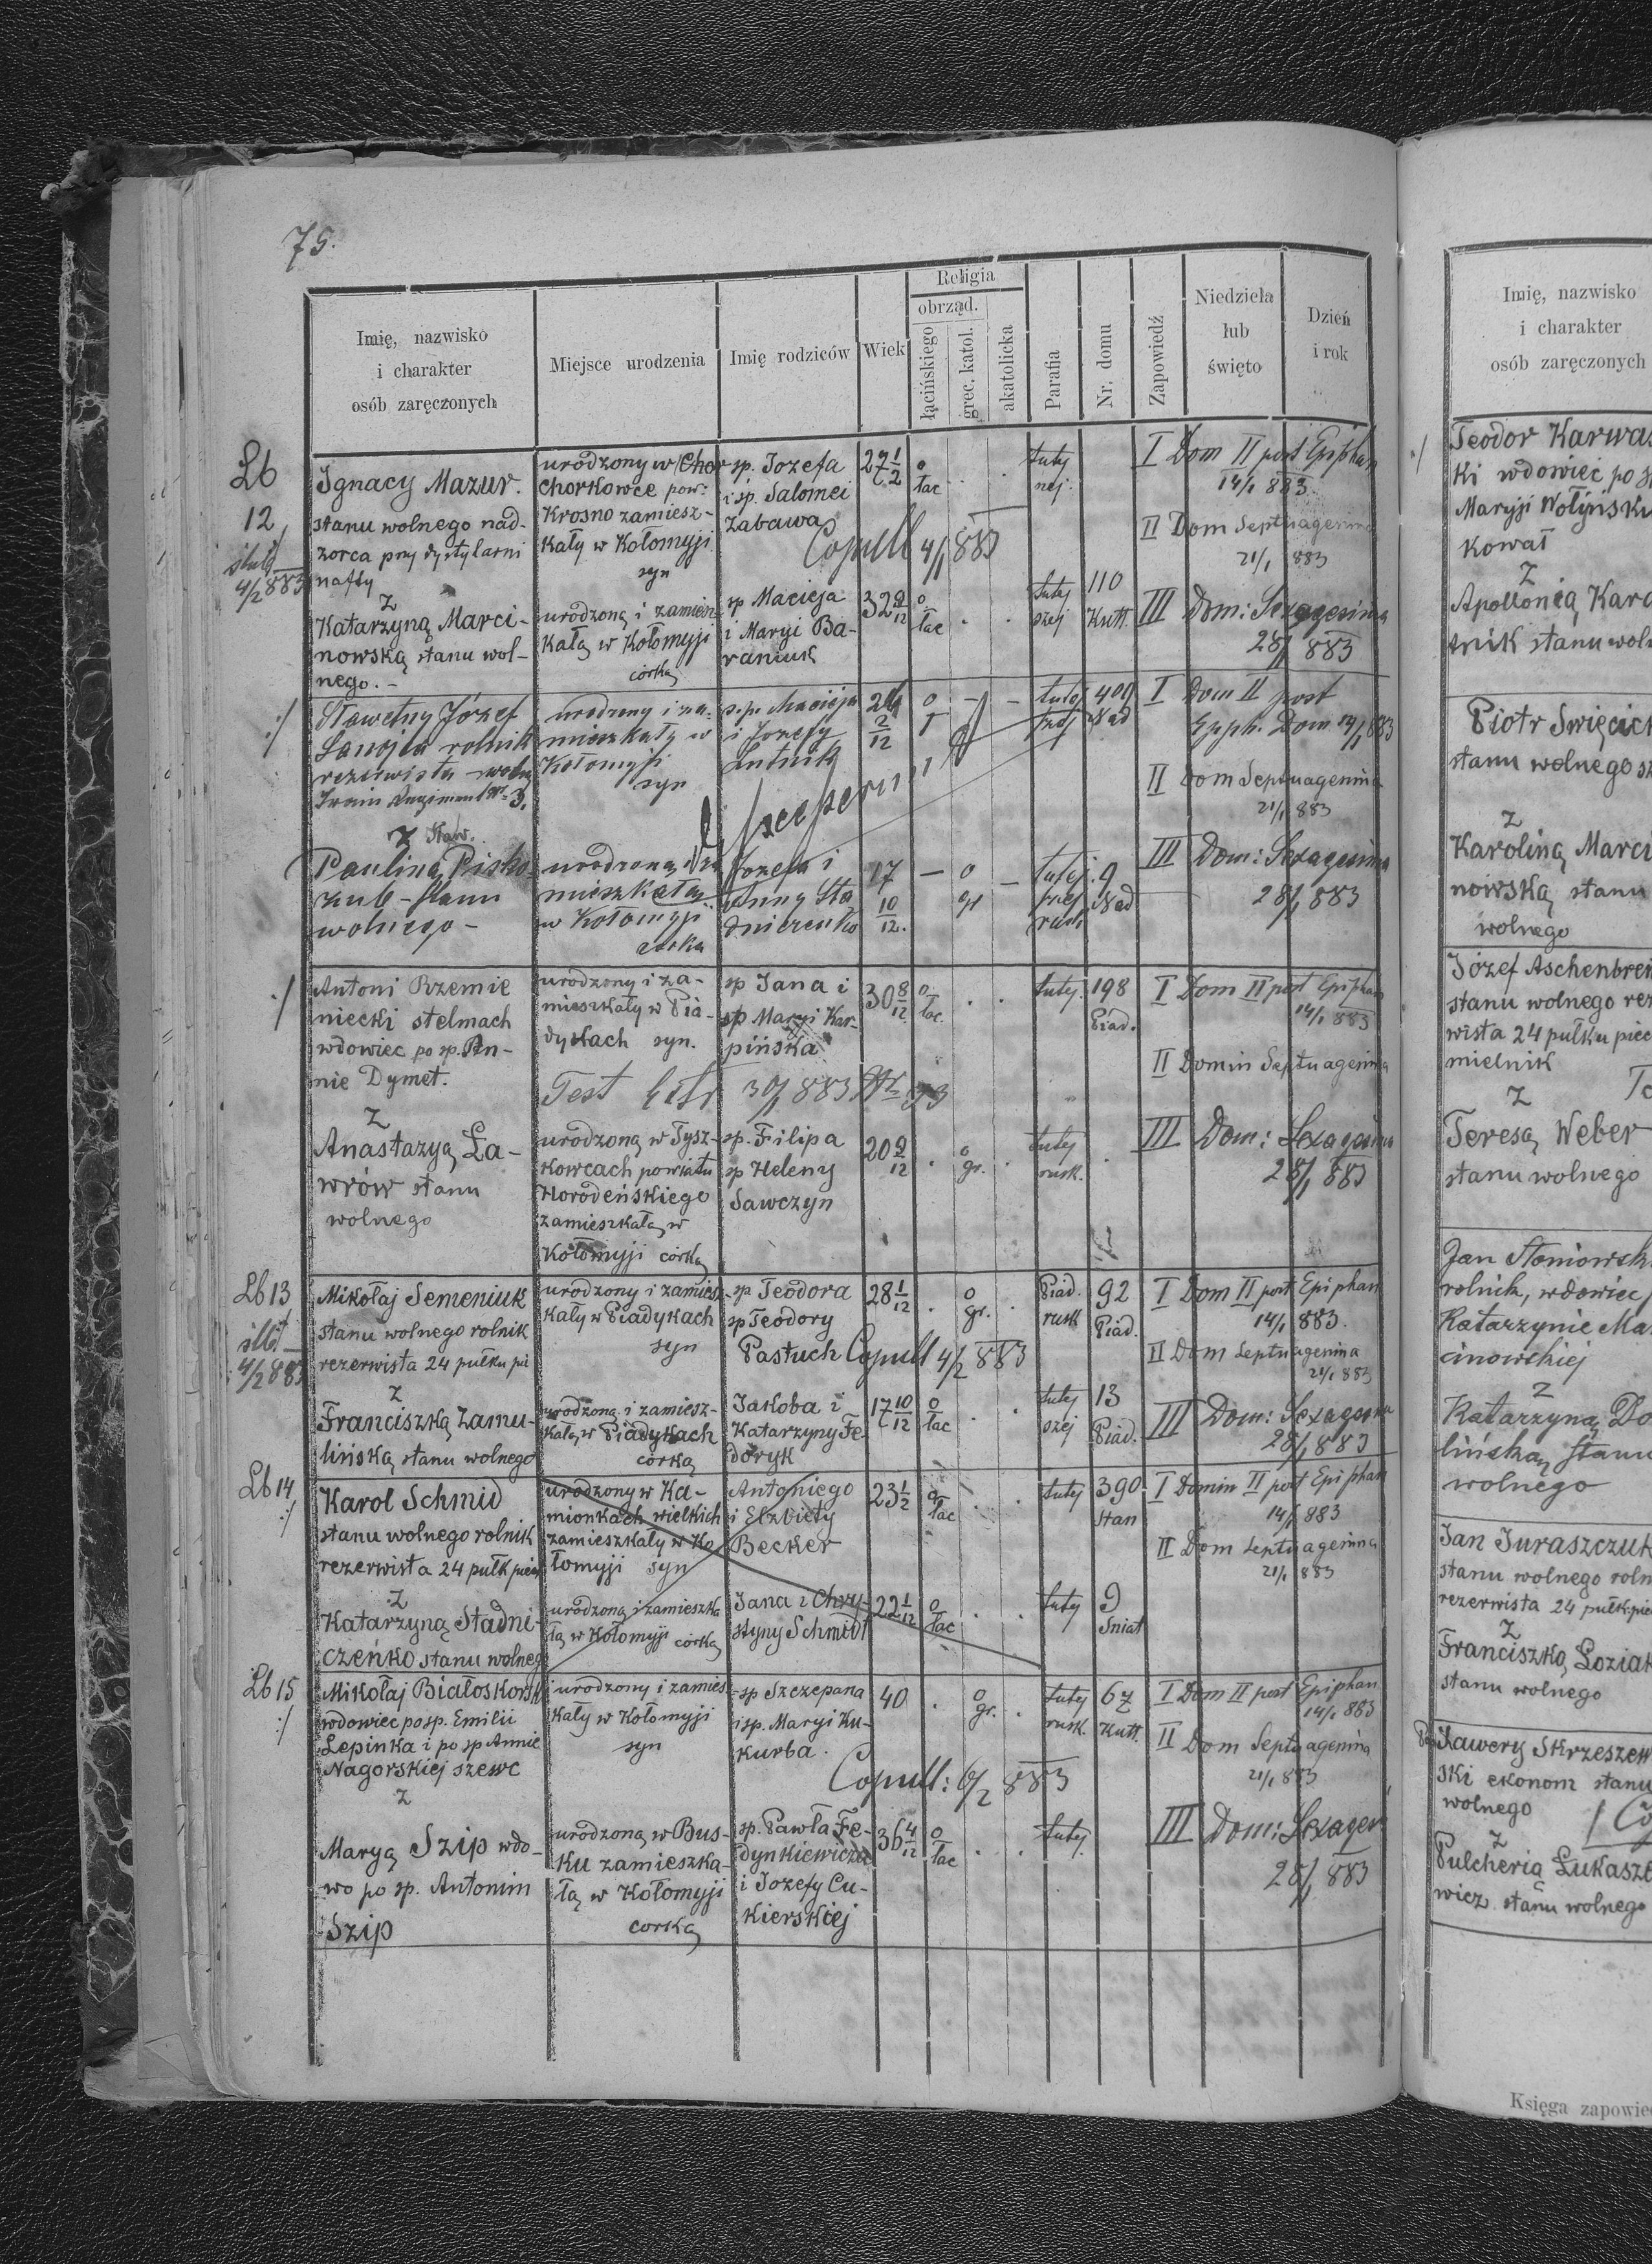 75.
Imię, nazwisko
i charakter
osób zaręczonych
Miejsce urodzenia
Imię rodziców
Wiek
Religia
obrząd.
łacińskiego
grec. katol.
akatolicka
Parafia
Nr. domu
Zapowiedź
Niedziela
lub
święto
Dzień
i rok
Lb
12
4/2 883
Ignacy Mazur.
stanu wolnego nad-
zorca przy dystylarni
nafty
z
Katarzyną Marci-
nowską stanu wol-
nego.-
urodzony w Chor
Chorkowce pow:
Krosno zamiesz-
kały w Kołomyji
syn
urodzoną i zamiesz-
kałą w Kołomyji
córką
sp. Jozefa
i sp. Salomei
Zabawa
Copull 4/1 883
sp Macieja
i Maryi Ba-
raniuk
27 1/2
o
łac
tutej
nej.
32 9/12
o
łac
tutej
szej
110
Kutt.
I Dom II post Epiphan
14/1 883.
II Dom Septuagesima
21/1 883
III Dom: Sexagesima
28/1 883
:/
Sławetny Józef
rolnik
rezerwista
z Sław.
Paulina
stanu
wolnego-
urodzony i za-
mieszkały w
Kołomyji
syn
urodzoną i za
mieszkałą
w Kołomyji
córka
s.p. Macieja
i Jozefy
Jozefa i
Anny Sta
dniczenko
24
2/12
o
17
10/12.
o
gr
409
Nad
tutej.
9
Nad
I Dom II post
Epph. Dom 14/1 883
II Dom Septuagesima
21/1 883
III Dom: Sexagesima
28/1 883
:/
Antoni Rzemie
niecki stelmach
wdowiec po sp. An-
nie Dymet.
z
Anastazyą Ła-
wrów stanu
wolnego
urodzony i za-
mieszkały w Pia-
dykach syn.
Test 30/1 883
urodzoną w Tysz-
kowcach powiatu
Horodeńskiego
zamieszkałą w
Kołomyji córką
sp Jana i
sp Maryi Kar-
pińska
sp. Filipa
sp Heleny
Sawczyn
30 8/12.
o
łac.
tutej.
198
Piad.
20 9/12
o
gr.
tutej
rusk.
I Dom II post Epiphan
14/1 883
II Domin Septuagesima
III Dom: Sexagesima
28/1 883
Lb 13
4/2 883
Mikołaj Semeniuk
stanu wolnego rolnik
rezerwista 24 pułku pie
z
Franciszką Zamu-
lińską stanu wolnego
urodzony i zamiesz
kały w Piadykach
syn
urodzoną i zamiesz-
kałą w Piadykach
córką
sp Teodora
sp Teodory
Pastuch Copull 4/2 883
Jakoba i
Katarzyny Fe-
doryk
28 1/12
o
gr.
Piad.
rusk
92
Piad.
17 10/12
o
łac
tutej
szej
13
Piad.
I Dom II post Epiphan
14/1 883.
II Dom Septuagesima
21/1 883
III Dom: Sexagesima
28/1 883
Lb 14
:/
Karol Schmid
stanu wolnego rolnik
rezerwista 24 pułk piech
z
Katarzyną Stadni-
czeńko stanu wolneg
urodzony w Ka-
mionkach wielkich
zamieszkały w Ko
łomyji syn
urodzoną i zamieszka
łą w Kołomyji córką
Antoniego
i Elżbiety
Becker
Jana i Chry-
styny Schmidt
23 1/2
o
łac
tutej
390
stan
22 1/12
o
łac
tutej
9
Sniat
I Domin II post Epiphan
14/1 883
II Dom Septuagesima
21/1 883
Lb 15
:/
Mikołaj Białoskorsk
wdowiec po sp. Emilii
Lepinka i po sp Annie
Nagorskiej szewc
z
Maryą Szip wdo-
wo po sp. Antonim
Szip
urodzony i zamies
kały w Kołomyji
syn
urodzoną w Bus-
ku zamieszka-
łą w Kołomyji
corką
sp Szczepana
i sp. Maryi Ku-
kurba.
Copull: 6/2 883
sp. Pawła Fe-
dynkiewicza
i Jozefy Cu-
kierskiej
40
o
gr.
tutej
rusk.
67
Kutt.
36 4/12
o
łac
tutej.
I Dom II post Epiphan
14/1 883
II Dom Septuagesima
21/1 883
III Dom: Sexages
28/1 883
Imię, nazwisko
i charakter
osób zaręczonych
Teodor Karwas
ki wdowiec po sp
Maryji Wołyńskie
kowal
z
Apollonią Karc
stanu woln
Piotr Swięcick
stanu wolnego
z
Karoliną Marci
nowską stanu
wolnego
Józef Aschenbren
stanu wolnego rez
wista 24 pułku piec
mielnik
z
Teresą Weber
stanu wolnego
Jan Słoniowsk
rolnik, wdowiec
Katarzynie Ma
cinowskiej
z
Katarzyną Do
lińską stanu
wolnego
Jan Juraszczuk
stanu wolnego roln
rezerwista 24 pułk. pie
z
Franciszką Łoziak
stanu wolnego
Xawery Skrzeszew
ski ekonom stanu
wolnego
z
Pulcherią Łukasze
wicz stanu wolnego
Księga zapowied